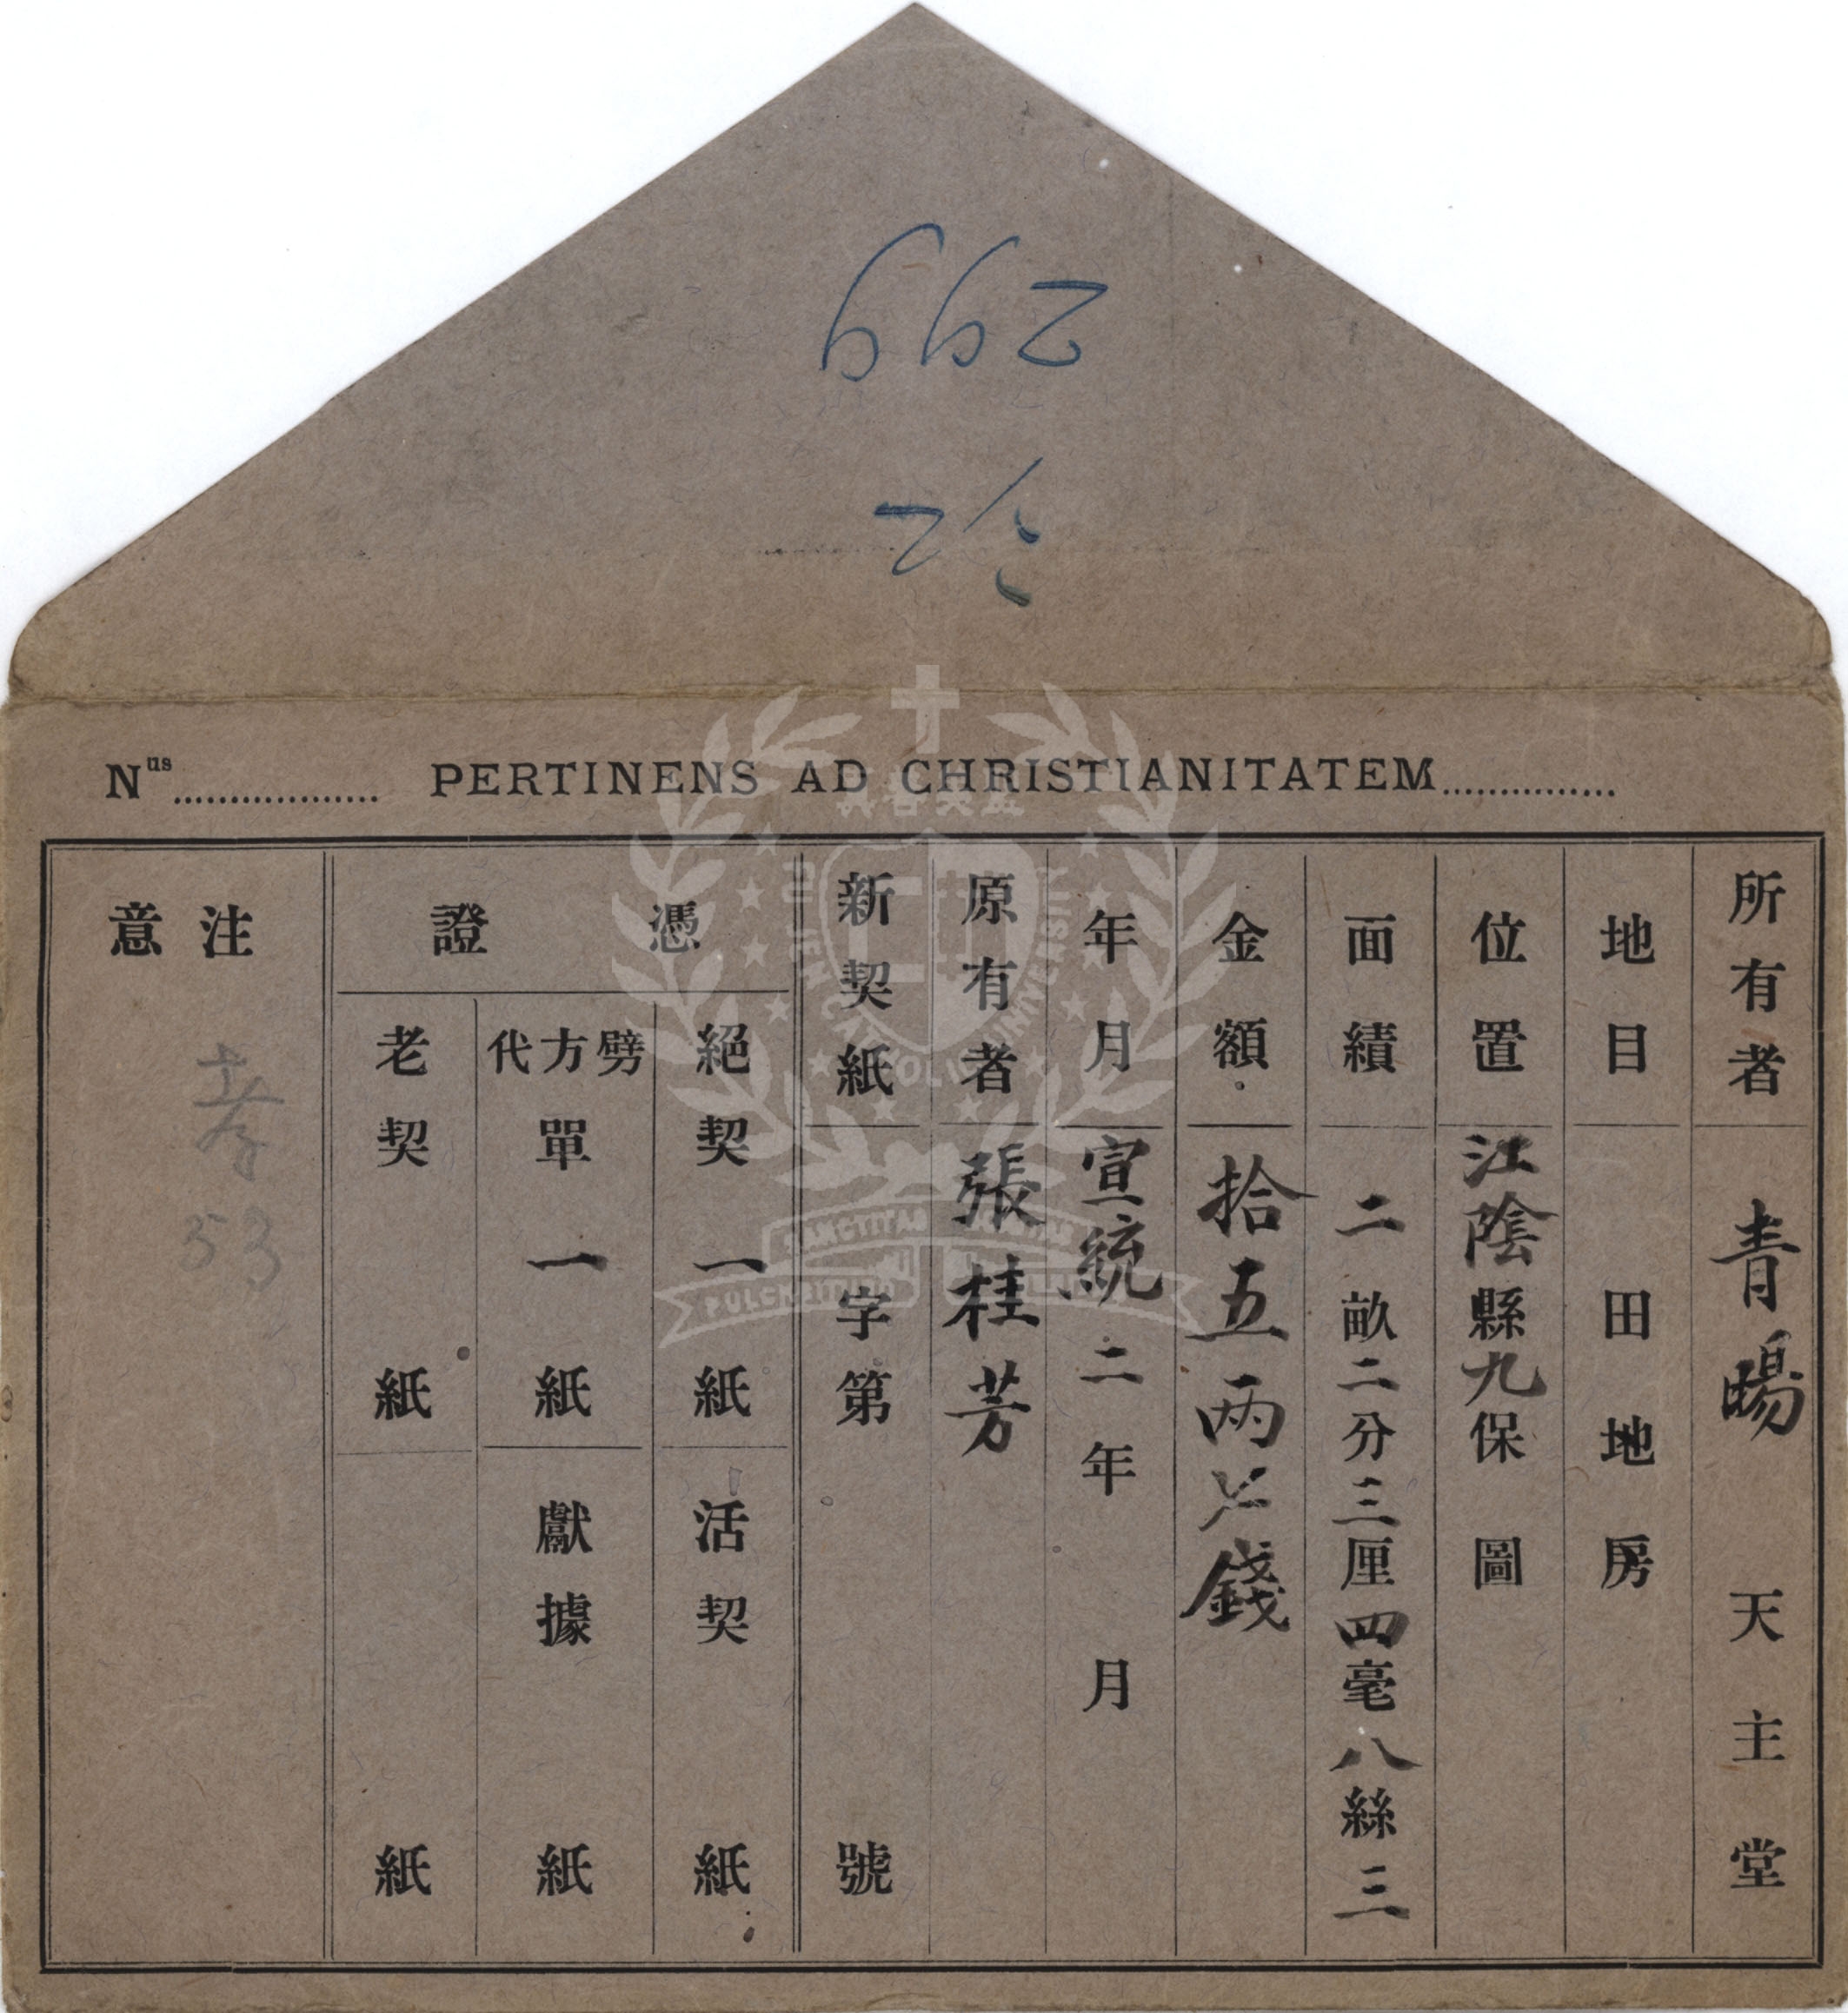 299
Nus PERTINENS AD CHRISTIANITATEM
所有者 青暘 天主堂
地目 田地房
位置 江陰縣九保圖
面績 二畝二分三厘四毫八絲三
金額 拾五兩錢
年月 宣統二年月
原有者 張桂芳
新契紙 字第號
憑證
絕契 一紙
活契 紙
劈方代單 一紙
獻據 紙
老契 紙
紙
注意
53